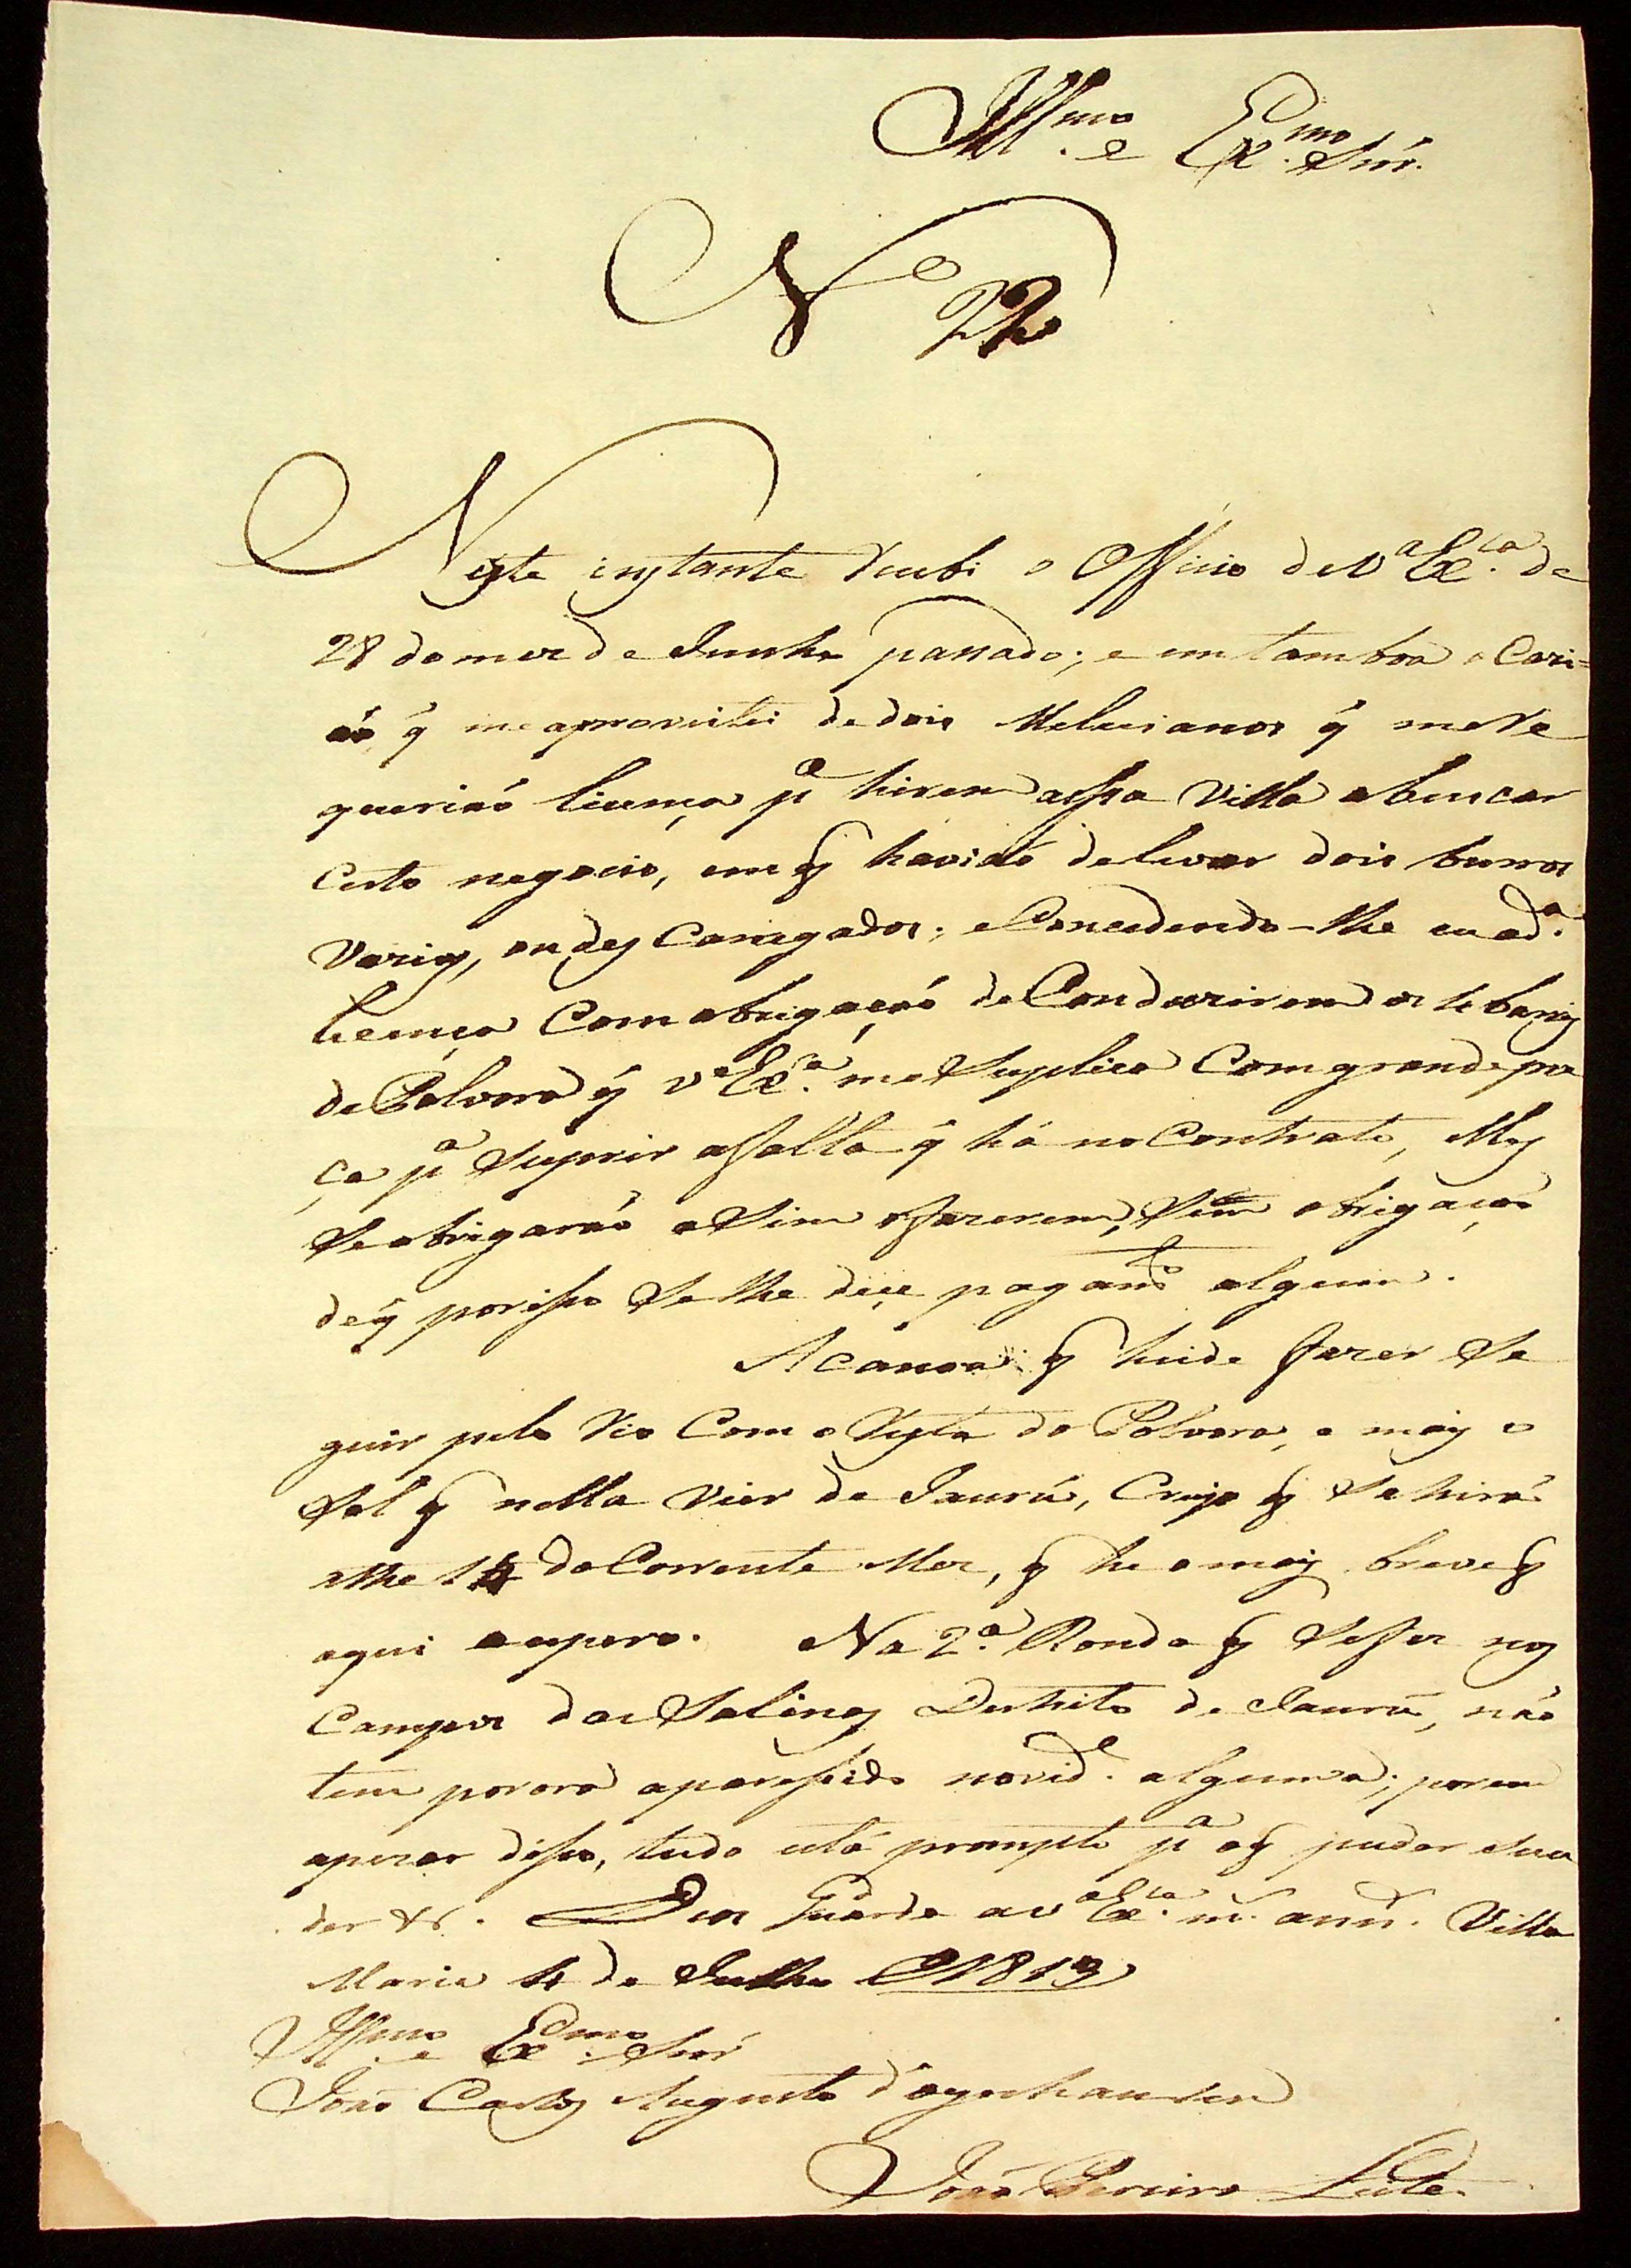 Ill.mo e Ex.mo Snr.
N.o 22
Neste instante recebi o Officio de V.a Ex.cia de
28 do mez de Junho passado; e em tam boa o Cazi=
áo, q̃ me aproveitei de dois Milicianos q̃ me re
queriaó licença p.a hirem a essa Villa abuscar
certo negocio, em q̃ haviaó de levar dois burros
vazios, ou des Carregados; e Concedendo-lhe eu a d.a
licença Com obrigaçaó de Conduzirem os 4 baris
de Polvora q̃ V.a Ex.a me Suplica Com grande pre
ça p.a Suprir a falta q̃ há no Contrato, elles
Se obrigaraó aSim o fazerem, Sem obrigaçaó
de q̃ por isso Se lhe dice pagam.to algum.
A canoa q̃ heide fazer Se
guir pelo Rio Com o Resto da Polvora, e mais o
Sal q̃ nella vier de Jaurú, Creyo q̃ Sahirá
athe 14 do Corrente Mez, q̃ he o mais breve q̃
aqui a espero. Na 2.a Ronda q̃ Se fez nos
Campos das Salinas Destrito de Jaurú, naó
tem por ora aparessido novid.e alguma; porem
apezar disso, tudo está prompto p.a o q̃ puder Suce
der &.a. Deos Guarde a V.a Ex.cia m.s ann.s Villa
Maria 4 de Julho de 1813
Ill.mo e Ex.mo Snr
João Carlos Augusto d'Oyenhausen
João Pereira Leite